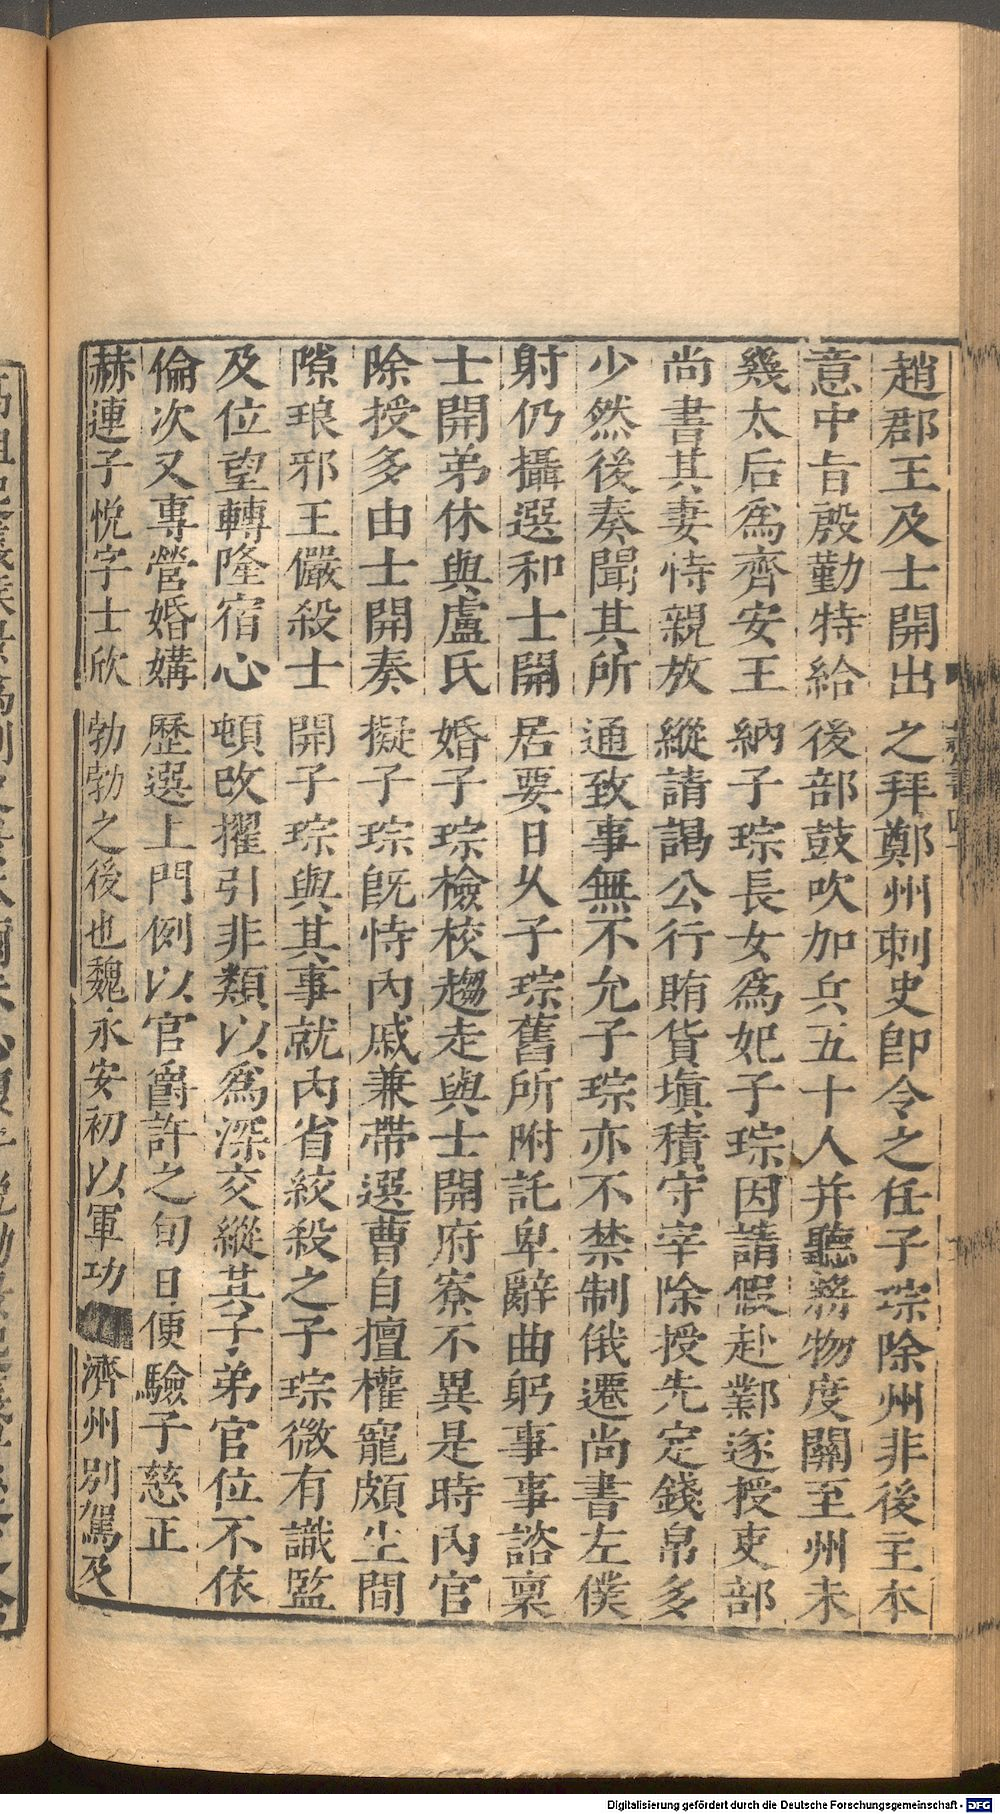 趙郡王及士開出之拜鄭州刺史卽令之任子琮除州非後主本
意中旨慇勤特給後部鼓吹加兵五十人并聽將物度關至州未
幾太后爲齊安王納子琮長女爲妃子琮因請假赴鄴遂授吏部
尚書其妻恃親放縱請謁公行賄貨塡積守宰除授先定錢帛多
少然後奏聞其所通致事無不允子琮亦不禁制俄遷尚書左僕
射仍攝選和士開居要日乆子琮舊所附託卑辭曲躬事事諮稟
士開弟休與盧氏婚子琮檢校趨走與士開府寮不異是時內官
除授多由士開奏擬子琮旣恃內戚兼帶選曹自擅權寵頗生間
隙琅邪王儼殺士開子琮與其事就內省絞殺之子琮微有識監
及位望轉隆宿心頓改擢引非類以爲深交縱其子弟官位不依
倫次又專營婚媾歷選上門例以官爵許之旬日便驗子慈正
赫連子悅字士欣勃勃之後也魏永安初以軍功 濟州別駕及
Digitalisierung gefördert durch die Deutsche Forschungsgemeinschaft - DFG